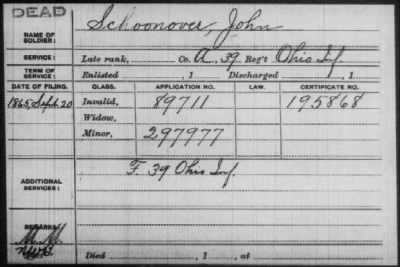 DEAD
NAME OF SOLDIER: Schoonover, John
SERVICE: Late rank, Co. A, 39 Reg't Ohio Inf.
TERM OF SERVICE: Enlisted , 1 Discharged , 1
DATE OF FILING. CLASS. APPLICATION NO. LAW. CERTIFICATE NO.
1865, Sept. 20 Invalid, 89711 195868
Widow,
Minor, 297977
ADDITIONAL SERVICES: F. 39 Ohio Inf.
REMARKS:
Died , 1 , at